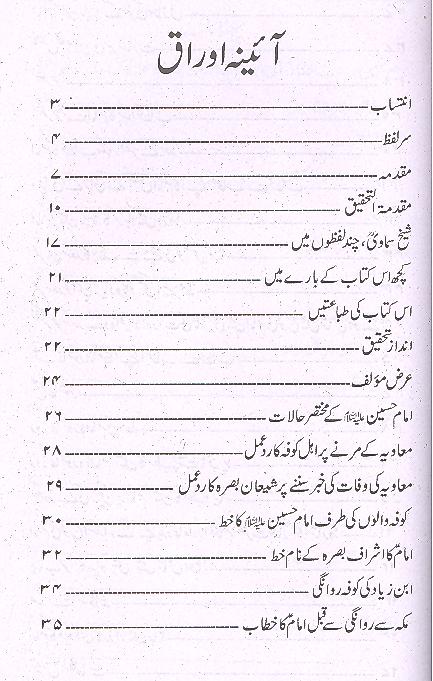 آئینہ اوراق
انتساب ۳
سر لفظ ۴
مقدمہ ۷
مقدمۃ التحقیق ۱۰
شیخ سماویؒ، چند لفظوں میں ۱۷
کچھ اس کتاب کے بارے میں ۲۱
اس کتاب کی طباعتیں ۲۲
انداز تحقیق ۲۲
عرض مؤلف ۲۴
امام حسین علیہ السلام کے مختصر حالات ۲۶
معاویہ کے مرنے پر اہل کوفہ کا رد عمل ۲۸
معاویہ کی وفات کی خبر سننے پر شیعیان بصرہ کا رد عمل ۲۹
کوفہ والوں کی طرف امام حسین علیہ السلام کا خط ۳۰
امامؑ کا اشراف بصرہ کے نام خط ۳۲
ابن زیاد کی کوفہ روانگی ۳۴
مکہ سے روانگی سے قبل امامؑ کا خطاب ۳۵